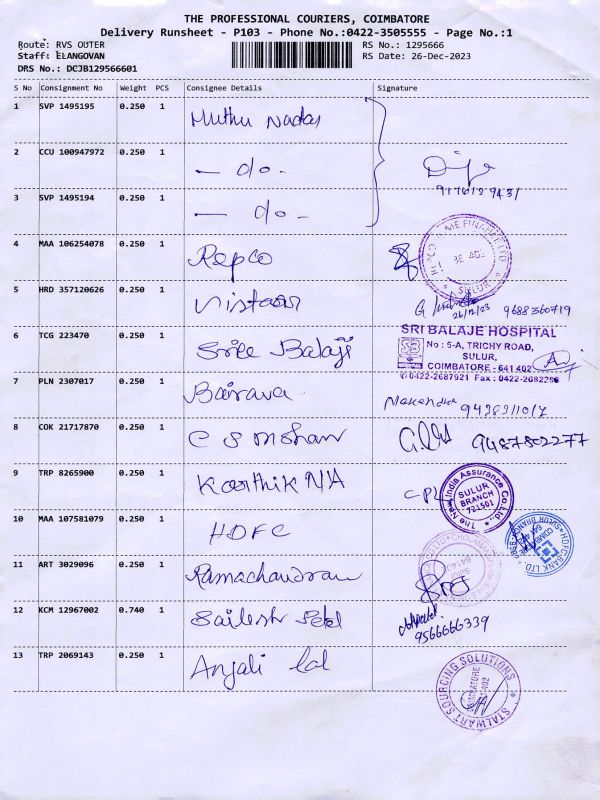 THE PROFESSIONAL COURIERS, COIMBATORE
Delivery Runsheet - P103 - Phone No.:0422-3505555 - Page No.:1
Route: RVS OUTER RS No.: 1295666
Staff: ELANGOVAN RS Date: 26-Dec-2023
DRS No.: DCJB129566601
S No Consignment No Weight PCS Consignee Details Signature
1 SVP 1495195 0.250 1 Muthu Nadar
2 CCU 100947972 0.250 1 — do -
3 SVP 1495194 0.250 1 — do -
4 MAA 106254078 0.250 1 Repco
SULUR
5 HRD 357120626 0.250 1 Vistaar
26/12/23 9688360719
6 TCG 223470 0.250 1 Sree Balaji
SRI BALAJE HOSPITAL
No : 5-A, TRICHY ROAD,
SULUR,
COIMBATORE - 641 402
0422-2687921 Fax : 0422-2682286
7 PLN 2307017 0.250 1 Bairava
8 COK 21717870 0.250 1 C S Mohan 9487802277
9 TRP 8265900 0.250 1 Karthik NIA
The New India Assurance Co.Ltd
SULUR
BRANCH
721501
10 MAA 107581079 0.250 1 HDFC
HDFC BANK LTD.
11 ART 3029096 0.250 1 Ramachandran
12 KCM 12967002 0.740 1 Sailesh Patel
9566666339
13 TRP 2069143 0.250 1 Anjali Lal
STALWART SOURCING SOLUTIONS
COIMBATORE